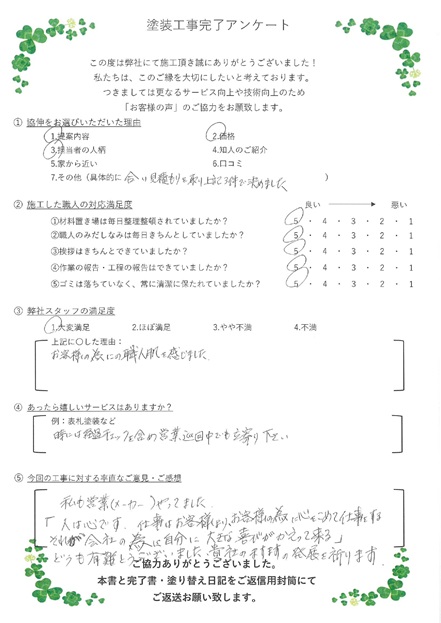 塗装工事完了アンケート
この度は弊社にて施工頂き誠にありがとうございました!
私たちは、このご縁を大切にしたいと考えております。
つきましては更なるサービス向上や技術向上のため
「お客様の声」のご協力をお願致します。
① 協伸をお選びいただいた理由
1.提案内容 2.価格
3.担当者の人柄 4.知人のご紹介
5.家から近い 6.口コミ
7.その他(具体的に 合い見積もりを取り上記3件で決めました )
② 施工した職人の対応満足度 良い 悪い
①材料置き場は毎日整理整頓されていましたか? 5・4・3・2・1
②職人のみだしなみは毎日きちんとしていましたか? 5・4・3・2・1
③挨拶はきちんとできていましたか? 5・4・3・2・1
④作業の報告・工程の報告はできていましたか? 5・4・3・2・1
⑤ゴミは落ちていなく、常に清潔に保たれていましたか? 5・4・3・2・1
③ 弊社スタッフの満足度
1.大変満足 2.ほぼ満足 3.やや不満 4.不満
上記に〇した理由:
お客様の為にの職人肌を感じました.
④ あったら嬉しいサービスはありますか?
例:表札塗装など
時には経過チェックを含め営業巡回中でも立寄り下さい
⑤ 今回の工事に対する率直なご意見・ご感想
私も営業(メーカー)やってました.
「人は心です. 仕事はお客様より、お客様の為に心をこめて仕事をする
それが会社の為に自分に大きな喜びがかえって来る」
どうも有難とうございました. 貴社のますますの発展を祈ります.
ご協力ありがとうございました。
本書と完了書・塗り替え日記をご返信用封筒にて
ご返送お願い致します。